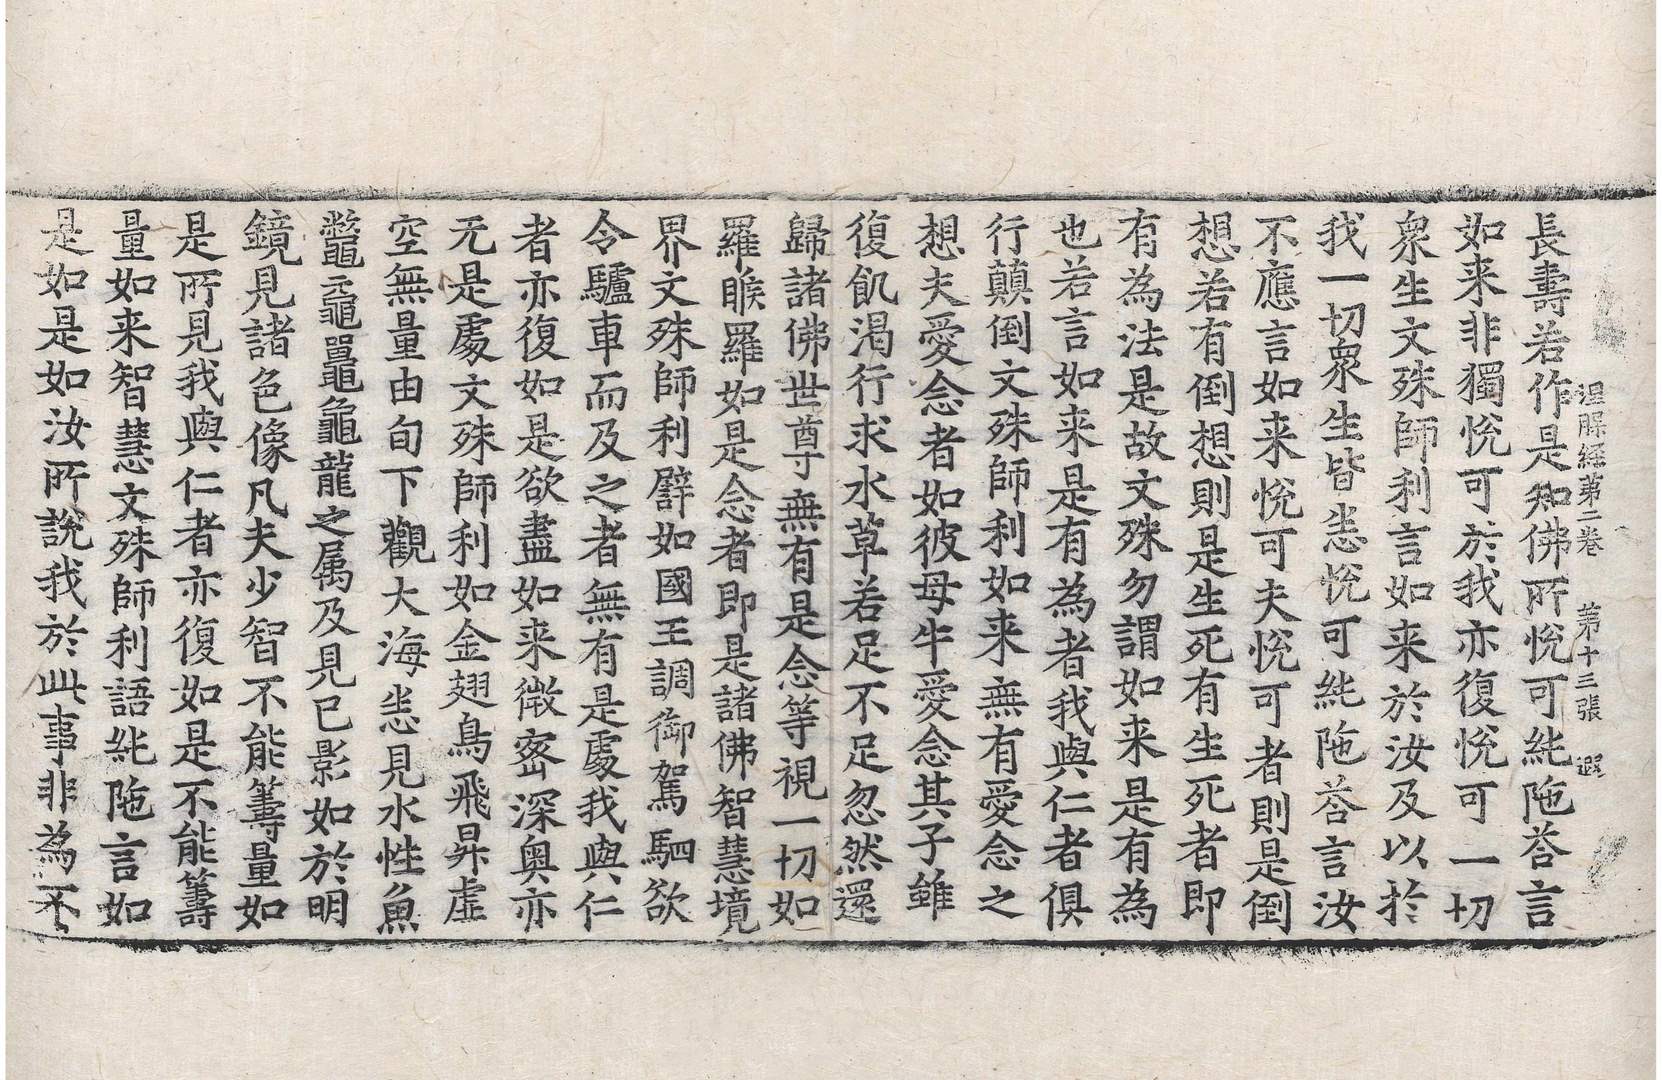 涅槃経第二卷　第十三張　遐
長壽若作是知佛所恱可純陁荅言
如来非獨恱可於我亦復恱可一切
衆生文殊師利言如来於汝及以扵
我一切衆生皆悉恱可純陁荅言汝
不應言如来恱可夫恱可者則是倒
想若有倒想則是生死有生死者即
有為法是故文殊勿謂如来是有為
也若言如来是有為者我與仁者俱
行顛倒文殊師利如来無有愛念之
想夫愛念者如彼母牛愛念其子雖
復飢渴行求水草若足不足忽然還
歸諸佛世尊無有是念等視一切如
羅睺羅如是念者即是諸佛智慧境
界文殊師利譬如國王調御駕駟欲
令驢車而及之者無有是處我與仁
者亦復如是欲盡如来微宻深奥亦
无是處文殊師利如金翅鳥飛昇虚
空無量由旬下觀大海悉見水性魚
鼈黿鼉龜龍之属及見已影如於明
鏡見諸色像凡夫少智不能籌量如
是所見我與仁者亦復如是不能籌
量如来智慧文殊師利語純陁言如
是如是如汝所說我於此事非為不